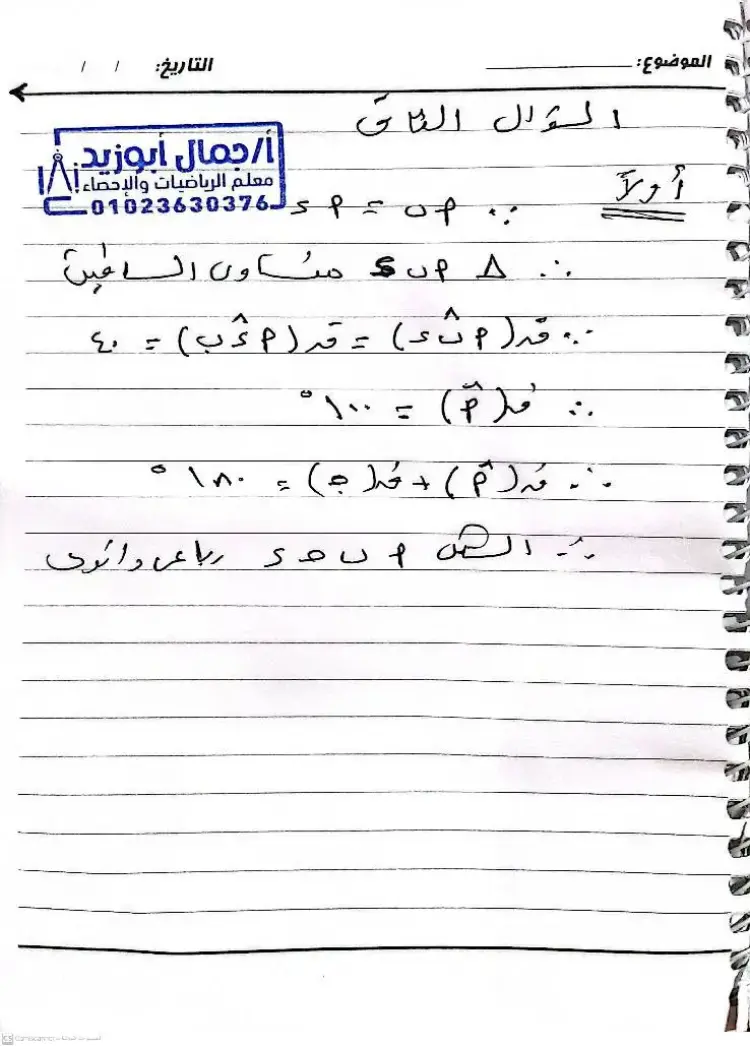 الموضوع: التاريخ: / /
السؤال الثانى
أ/جمال أبوزيد
معلم الرياضيات والإحصاء
01023630376
أولاً
∵ م ب = م ء
∴ Δ م ب ء متساوى الساقين
∴ ق(م ب̂ ء) = ق(م ء̂ ب) = ٤٠
∴ ق(م̂) = ١٠٠°
∴ ق(م̂) + ق(ج̂) = ١٨٠°
∴ الشكل م ب ج ء رباعى دائرى
CS